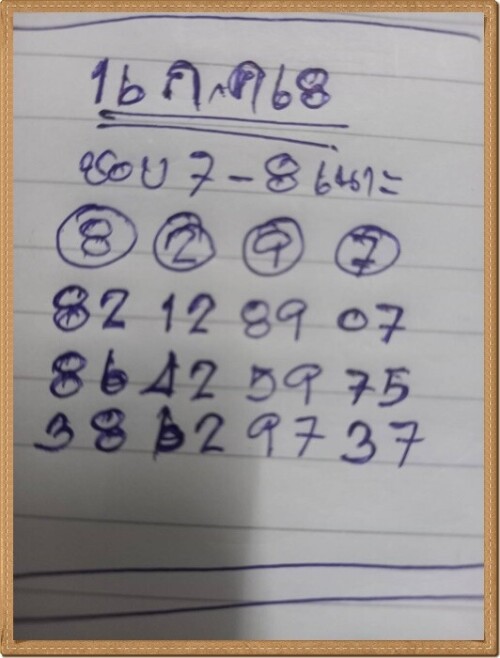 16 ก.ค 68
ชอบ 7-8 เน้า=
8 2 9 7
82 12 89 07
86 42 59 75
38 62 97 37